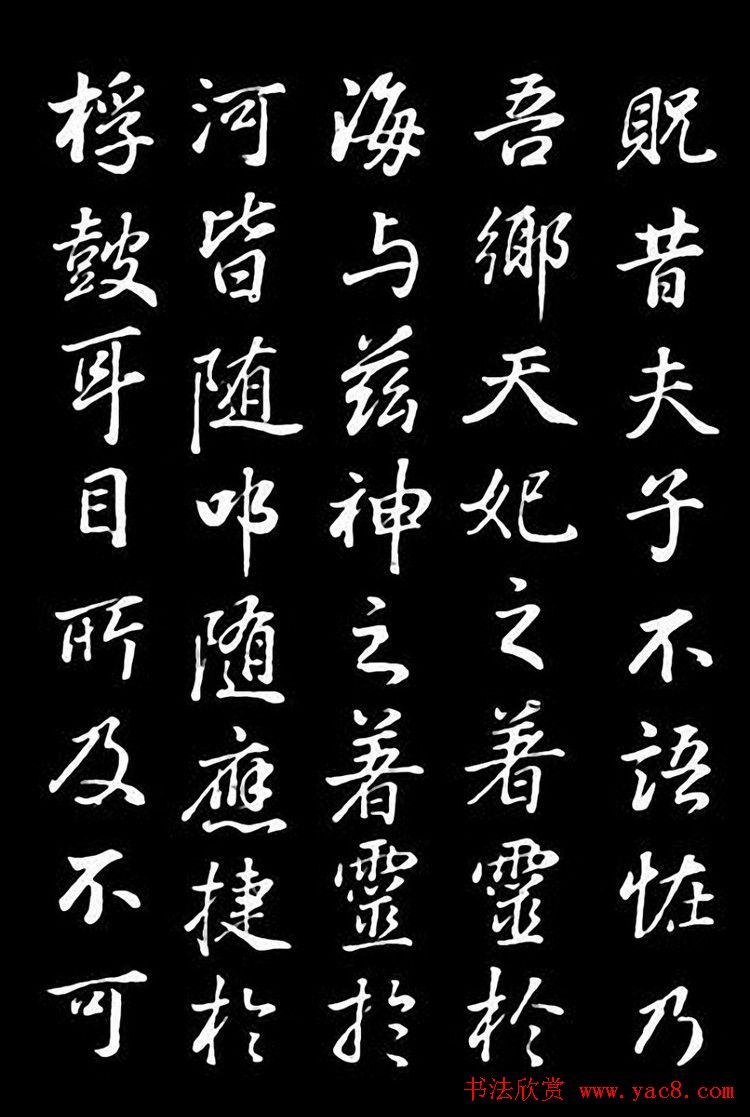 貺昔夫子不語恠乃
吾鄉天妃之著靈於
海与兹神之著靈於
河皆随叩随應捷於
桴鼓耳目所及不可
书法欣赏 www.yac8.com